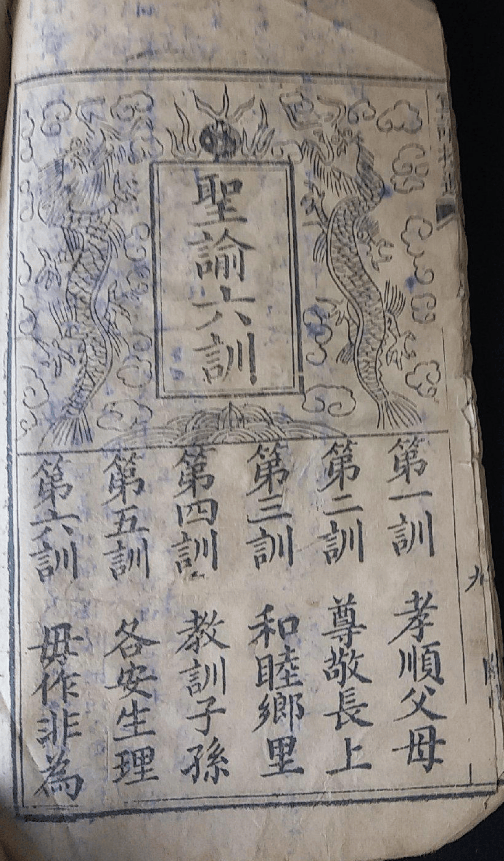 聖諭六訓
第一訓 孝順父母
第二訓 尊敬長上
第三訓 和睦鄉里
第四訓 教訓子孫
第五訓 各安生理
第六訓 毋作非為
九